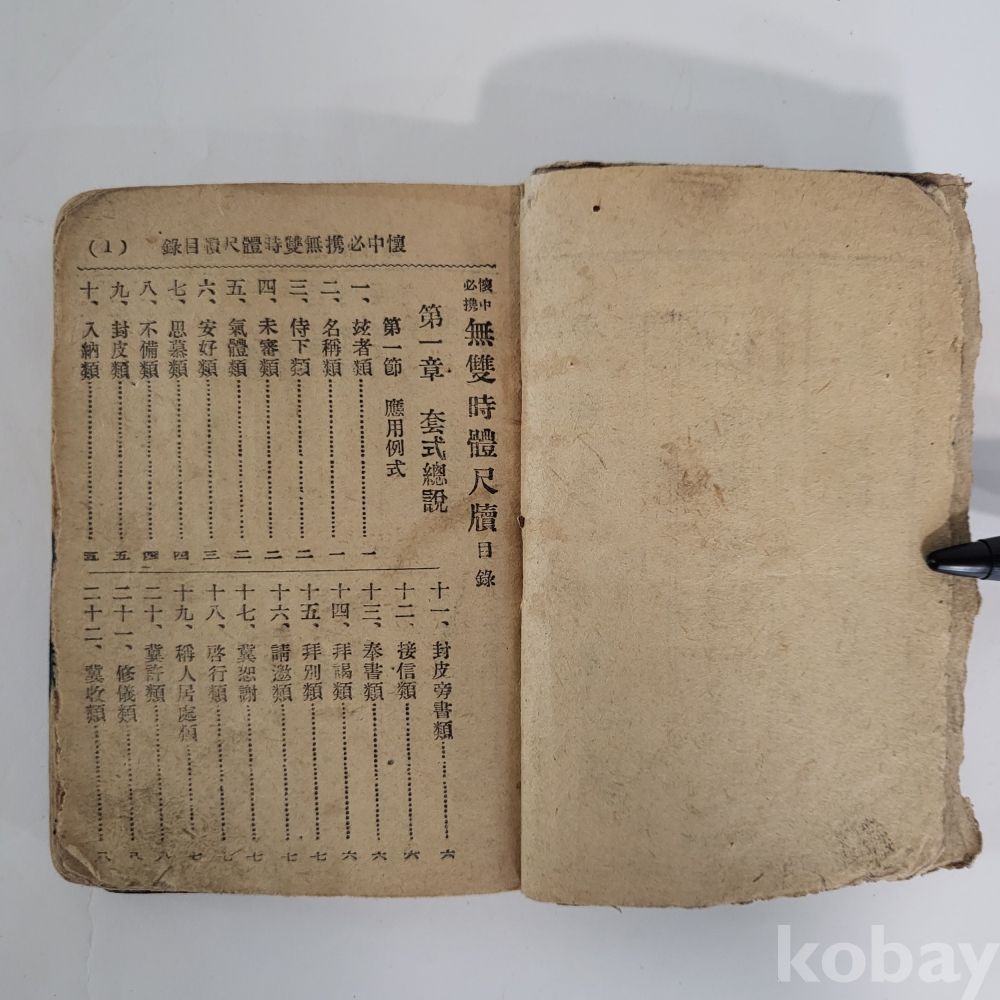 懷中必携無雙時體尺牘目錄 (1)
懷中必携 無雙時體尺牘目錄
第一章 套式總說
第一節 應用例式
一、玆者類 一
二、名稱類 一
三、侍下類 二
四、未審類 二
五、氣體類 二
六、安好類 三
七、思慕類 四
八、不備類 四
九、封皮類 五
十、入納類 五
十一、封皮旁書類 六
十二、接信類 六
十三、奉書類 六
十四、拜謁類 六
十五、拜別類 七
十六、請邀類 七
十七、冀恕謝 七
十八、啓行類 七
十九、稱人居處類 七
二十、冀許類 八
二十一、修儀類 八
二十二、冀收類 八
kobay